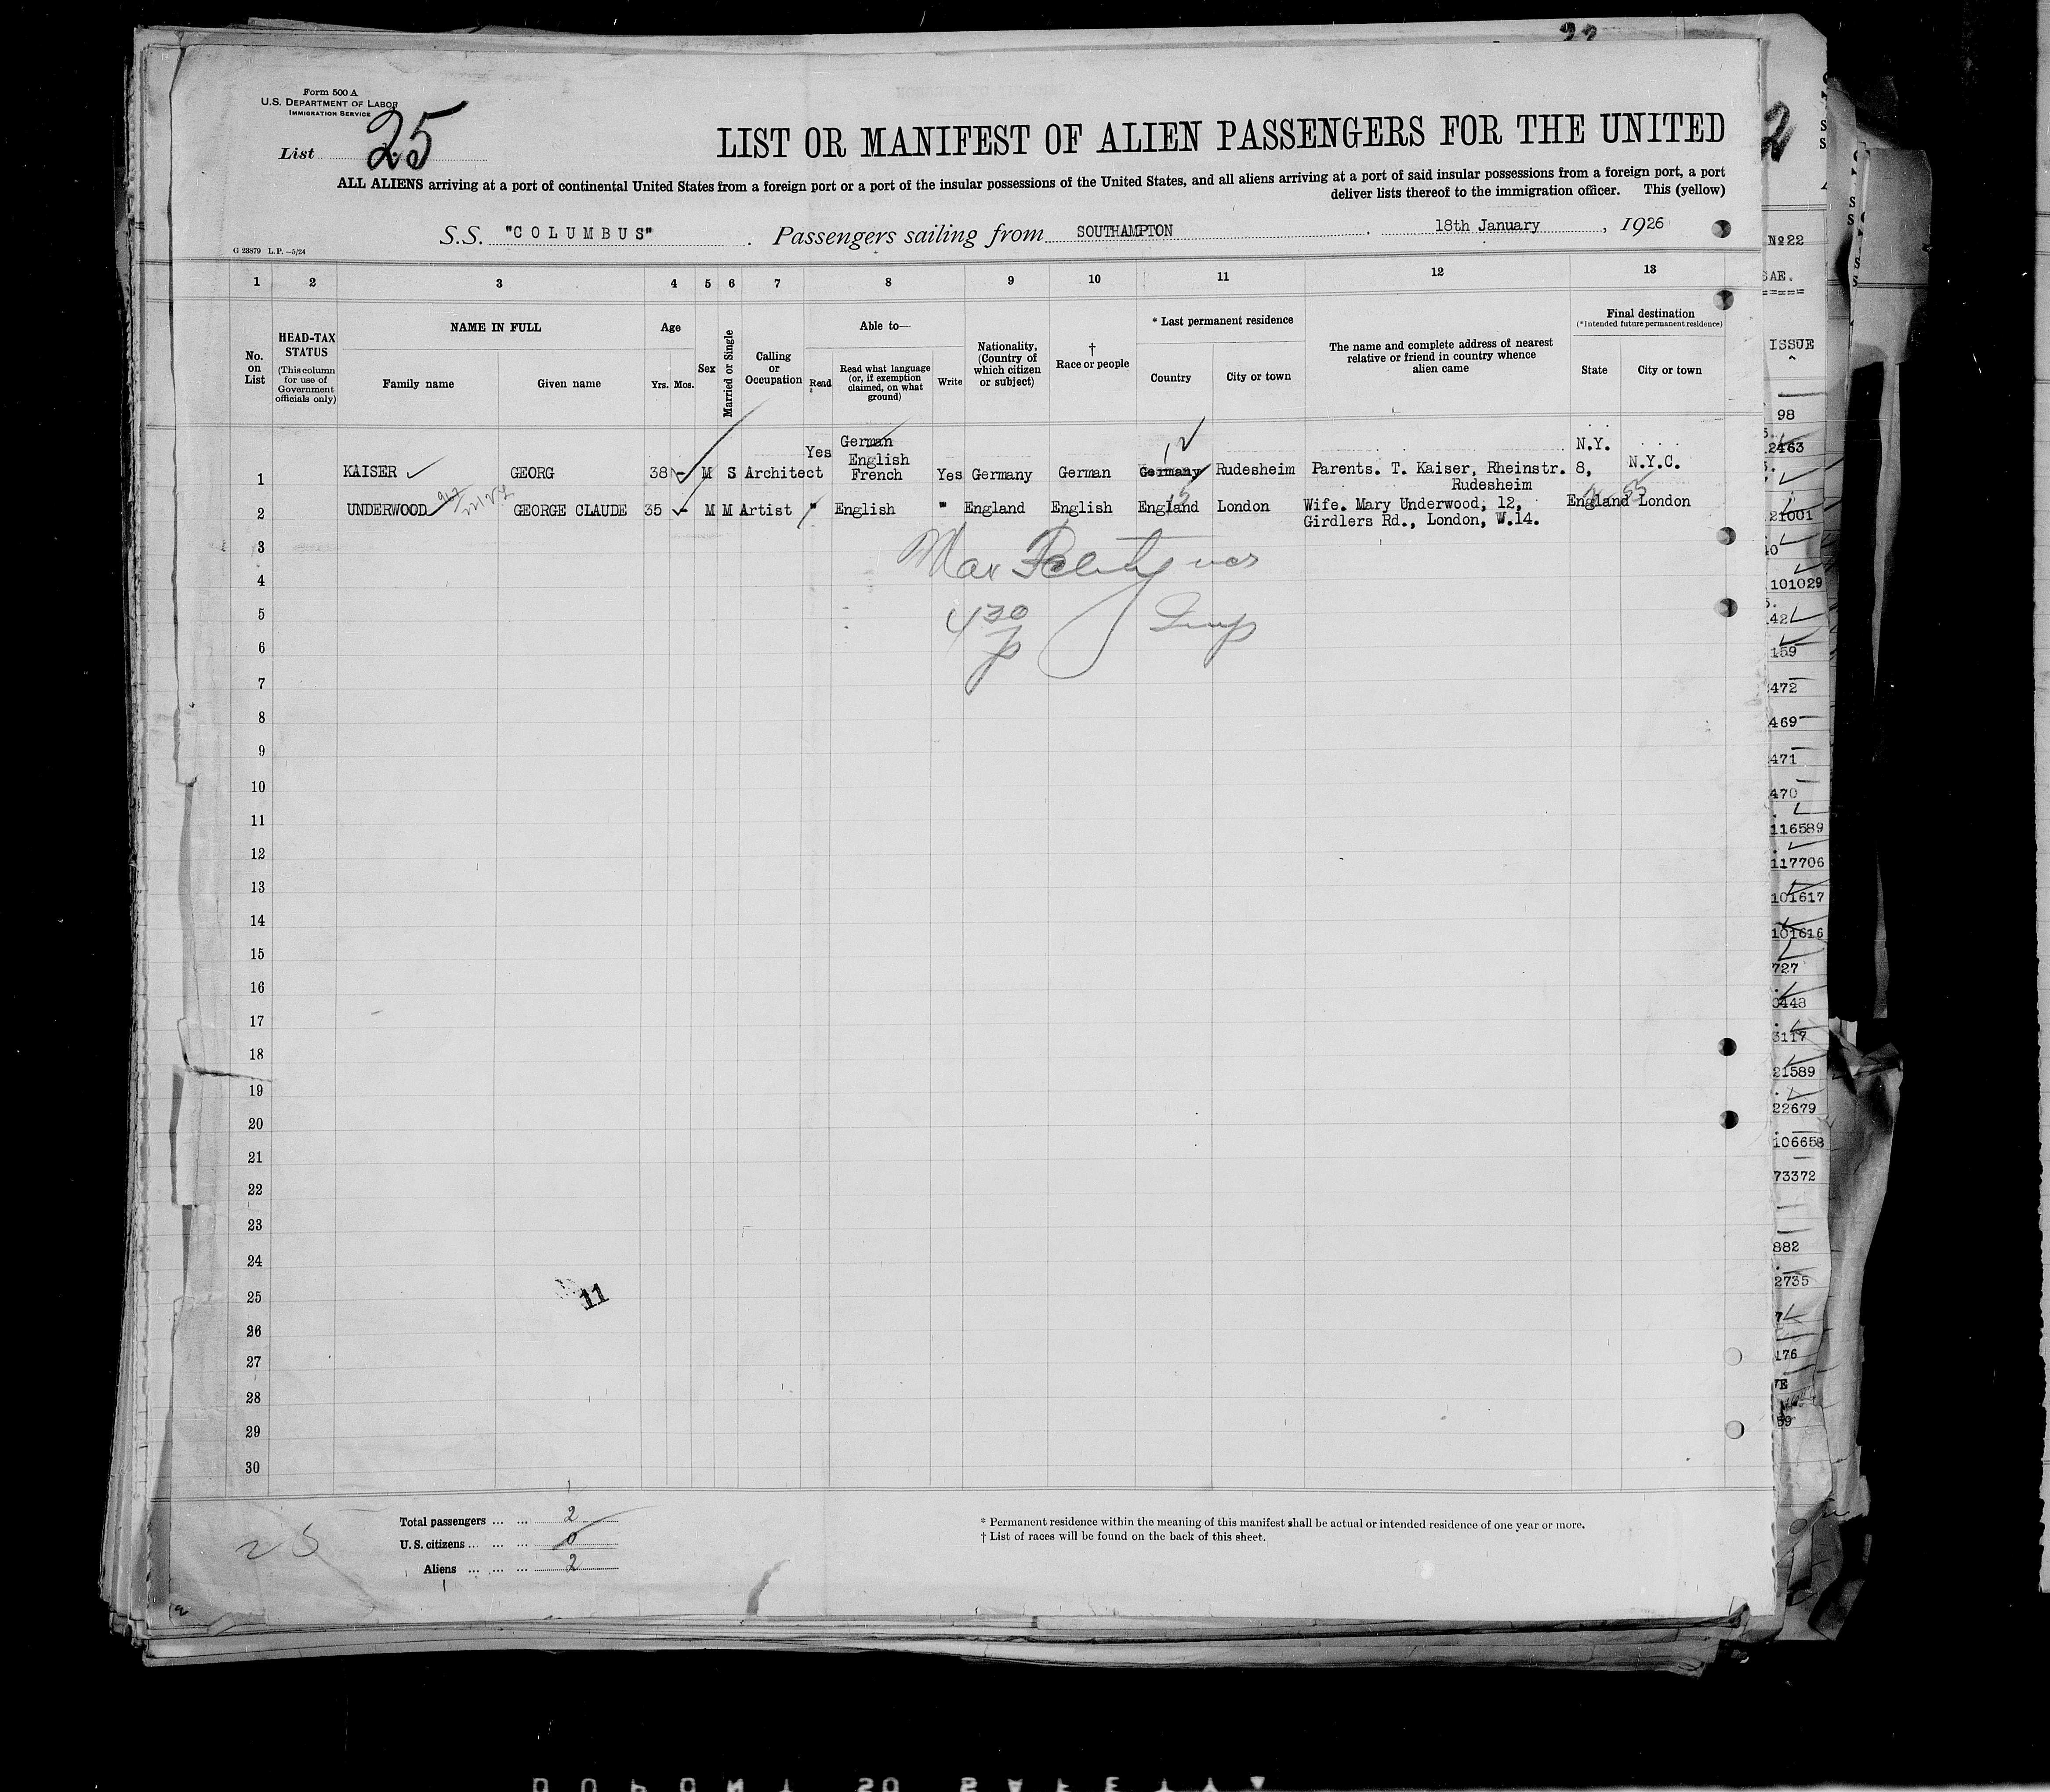 Form 500 A
U.S. DEPARTMENT OF LABOR
IMMIGRATION SERVICE
List 25
LIST OR MANIFEST OF ALIEN PASSENGERS FOR THE UNITED
ALL ALIENS arriving at a port of continental United States from a foreign port or a port of the insular possessions of the United States, and all aliens arriving at a port of said insular possessions from a foreign port, a port
deliver lists thereof to the immigration officer. This (yellow)
S.S. "COLUMBUS" . Passengers sailing from SOUTHAMPTON . 18th January , 1926
G 23879 L.P. —5/24
1 2 3 4 5 6 7 8 9 10 11 12 13
No. on List
HEAD-TAX STATUS
(This column for use of Government officials only)
NAME IN FULL
Family name Given name
Age
Yrs. Mos.
Sex
Married or Single
Calling or Occupation
Able to—
Read
Read what language (or, if exemption claimed, on what ground)
Write
Nationality, (Country of which citizen or subject)
† Race or people
* Last permanent residence
Country City or town
The name and complete address of nearest relative or friend in country whence alien came
Final destination
(*Intended future permanent residence)
State City or town
1 KAISER GEORG 38 - M S Architect Yes German English French Yes Germany German Germany Rudesheim Parents. T. Kaiser, Rheinstr. 8, Rudesheim N.Y. N.Y.C.
2 UNDERWOOD GEORGE CLAUDE 35 - M M Artist " English " England English England London Wife. Mary Underwood, 12, Girdlers Rd., London, W.14. England London
3
4
5
6
7
8
9
10
11
12
13
14
15
16
17
18
19
20
21
22
23
24
25
26
27
28
29
30
11
Total passengers ... ... 2
U. S. citizens ... ... ... 0
Aliens ... ... ... 2
25
* Permanent residence within the meaning of this manifest shall be actual or intended residence of one year or more.
† List of races will be found on the back of this sheet.
№22
ISSUE
98
2463
21001
101029
42
159
472
469
471
470
116589
117706
101617
101616
727
3117
21589
22679
106658
73372
882
2735
176
59